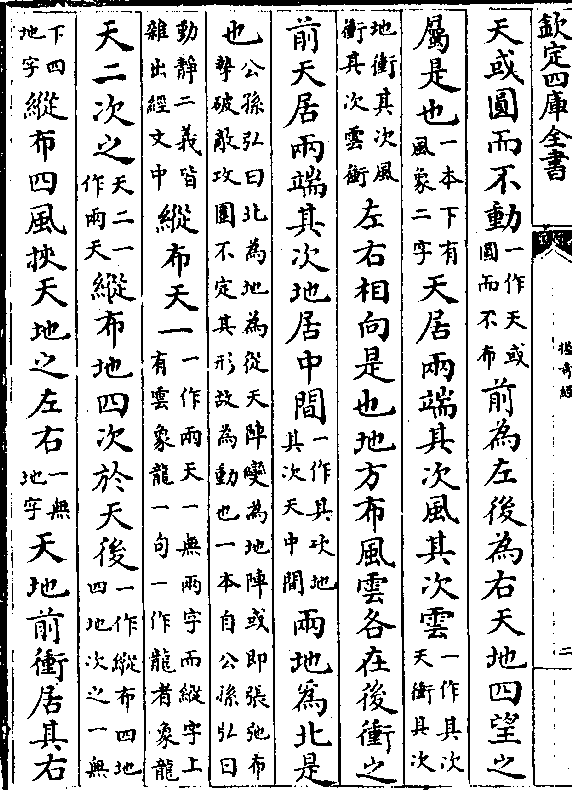 欽定四庫全書
握奇經
二
天或圓而不動一作天或圓而不布前為左後為右天地四望之
屬是也一本下有風象二字天居兩端其次風其次雲一作其次天衝其次
地衝其次風衝其次雲衝左右相向是也地方布風雲各在後衝之
前天居兩端其次地居中間一作其次地其次天中間兩地為北是
也公孫弘曰北為地為從天陣變為地陣或即張弛布摯破敵攻圍不定其形故為動也一本自公孫弘曰
動靜二義皆雜出經文中縱布天一一作兩天一無兩字而縱字上有雲象龍一句一作龍者象龍
天二次之天二一作兩天縱布地四次於天後一作縱布四地四地次之一無
下四地字縱布四風挾天地之左右一無地字天地前衝居其右